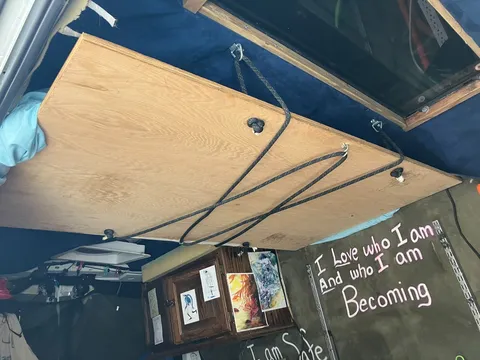 I Love who I am
And who I am
Becoming
I am Safe